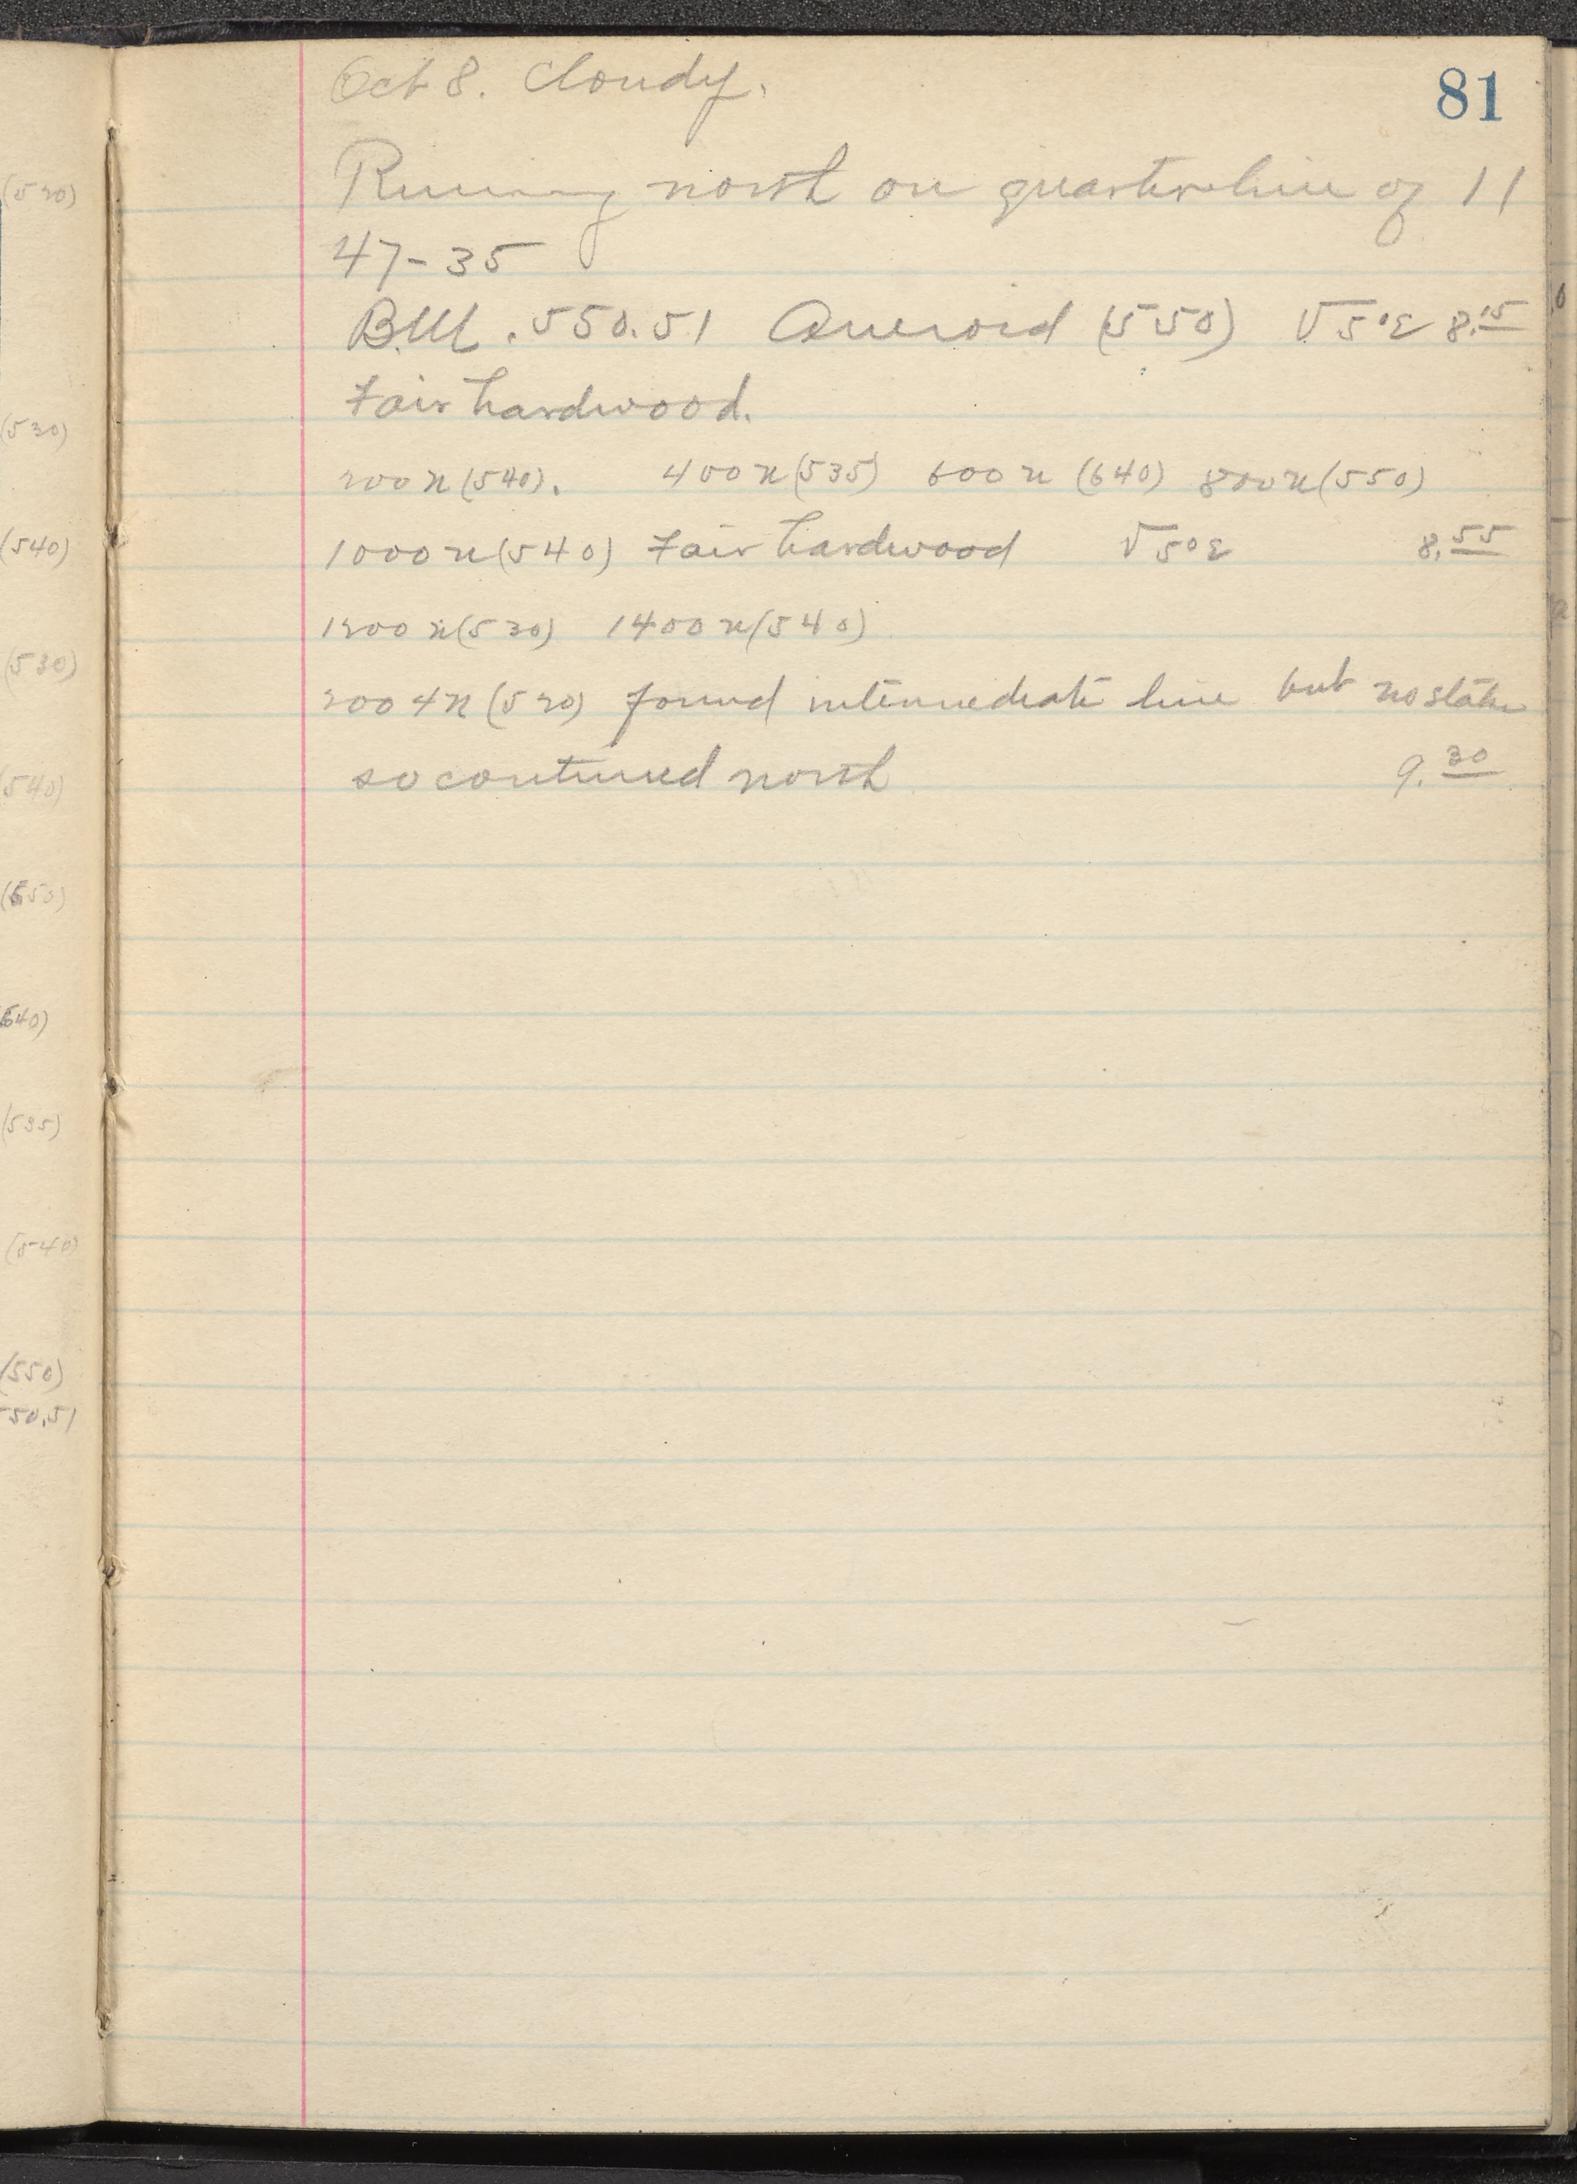 (520)
(530)
(540)
(530)
(540)
(550)
640)
(535)
(540)
(550)
50.51
81
Oct 8. Cloudy.
Running north on quarter line of 11
47-35
B.M. 550.51 Aneroid (550) V 5°E 8.15
Fair hardwood.
200 n (540). 400 n (535) 600 n (640) 800 n (550)
1000 n (540) Fair hardwood V 5°E 8.55
1200 n (530) 1400 n (540)
2004 n (520) found intermediate line but no stake
so continued north 9.30